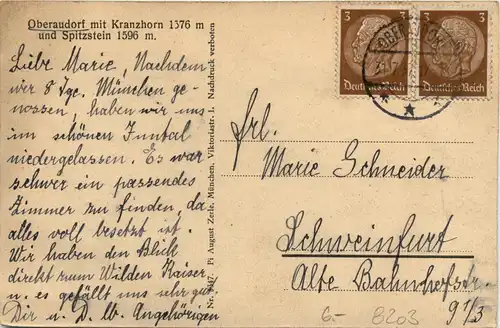 Oberaudorf mit Kranzhorn 1376 m
und Spitzstein 1596 m.
Liebe Marie, Nachdem
wir 8 Tge. München ge-
nossen, haben wir uns
im schönen Inntal
niedergelassen. Es war
schwer ein passendes
Zimmer zu finden, da
alles voll besetzt ist.
Wir haben den Blick
direkt zum Wilden Kaiser
u. es gefällt uns sehr gut
Dir u. D. lb. Angehörigen
Pi August Zerle, München, Viktoriastr. 1. Nachdruck verboten
3 3
Deutsches Reich Deutsches Reich
Frl.
Marie Schneider
Schweinfurt
Alte Bahnhofstr.
9 1/3
6.- 8203